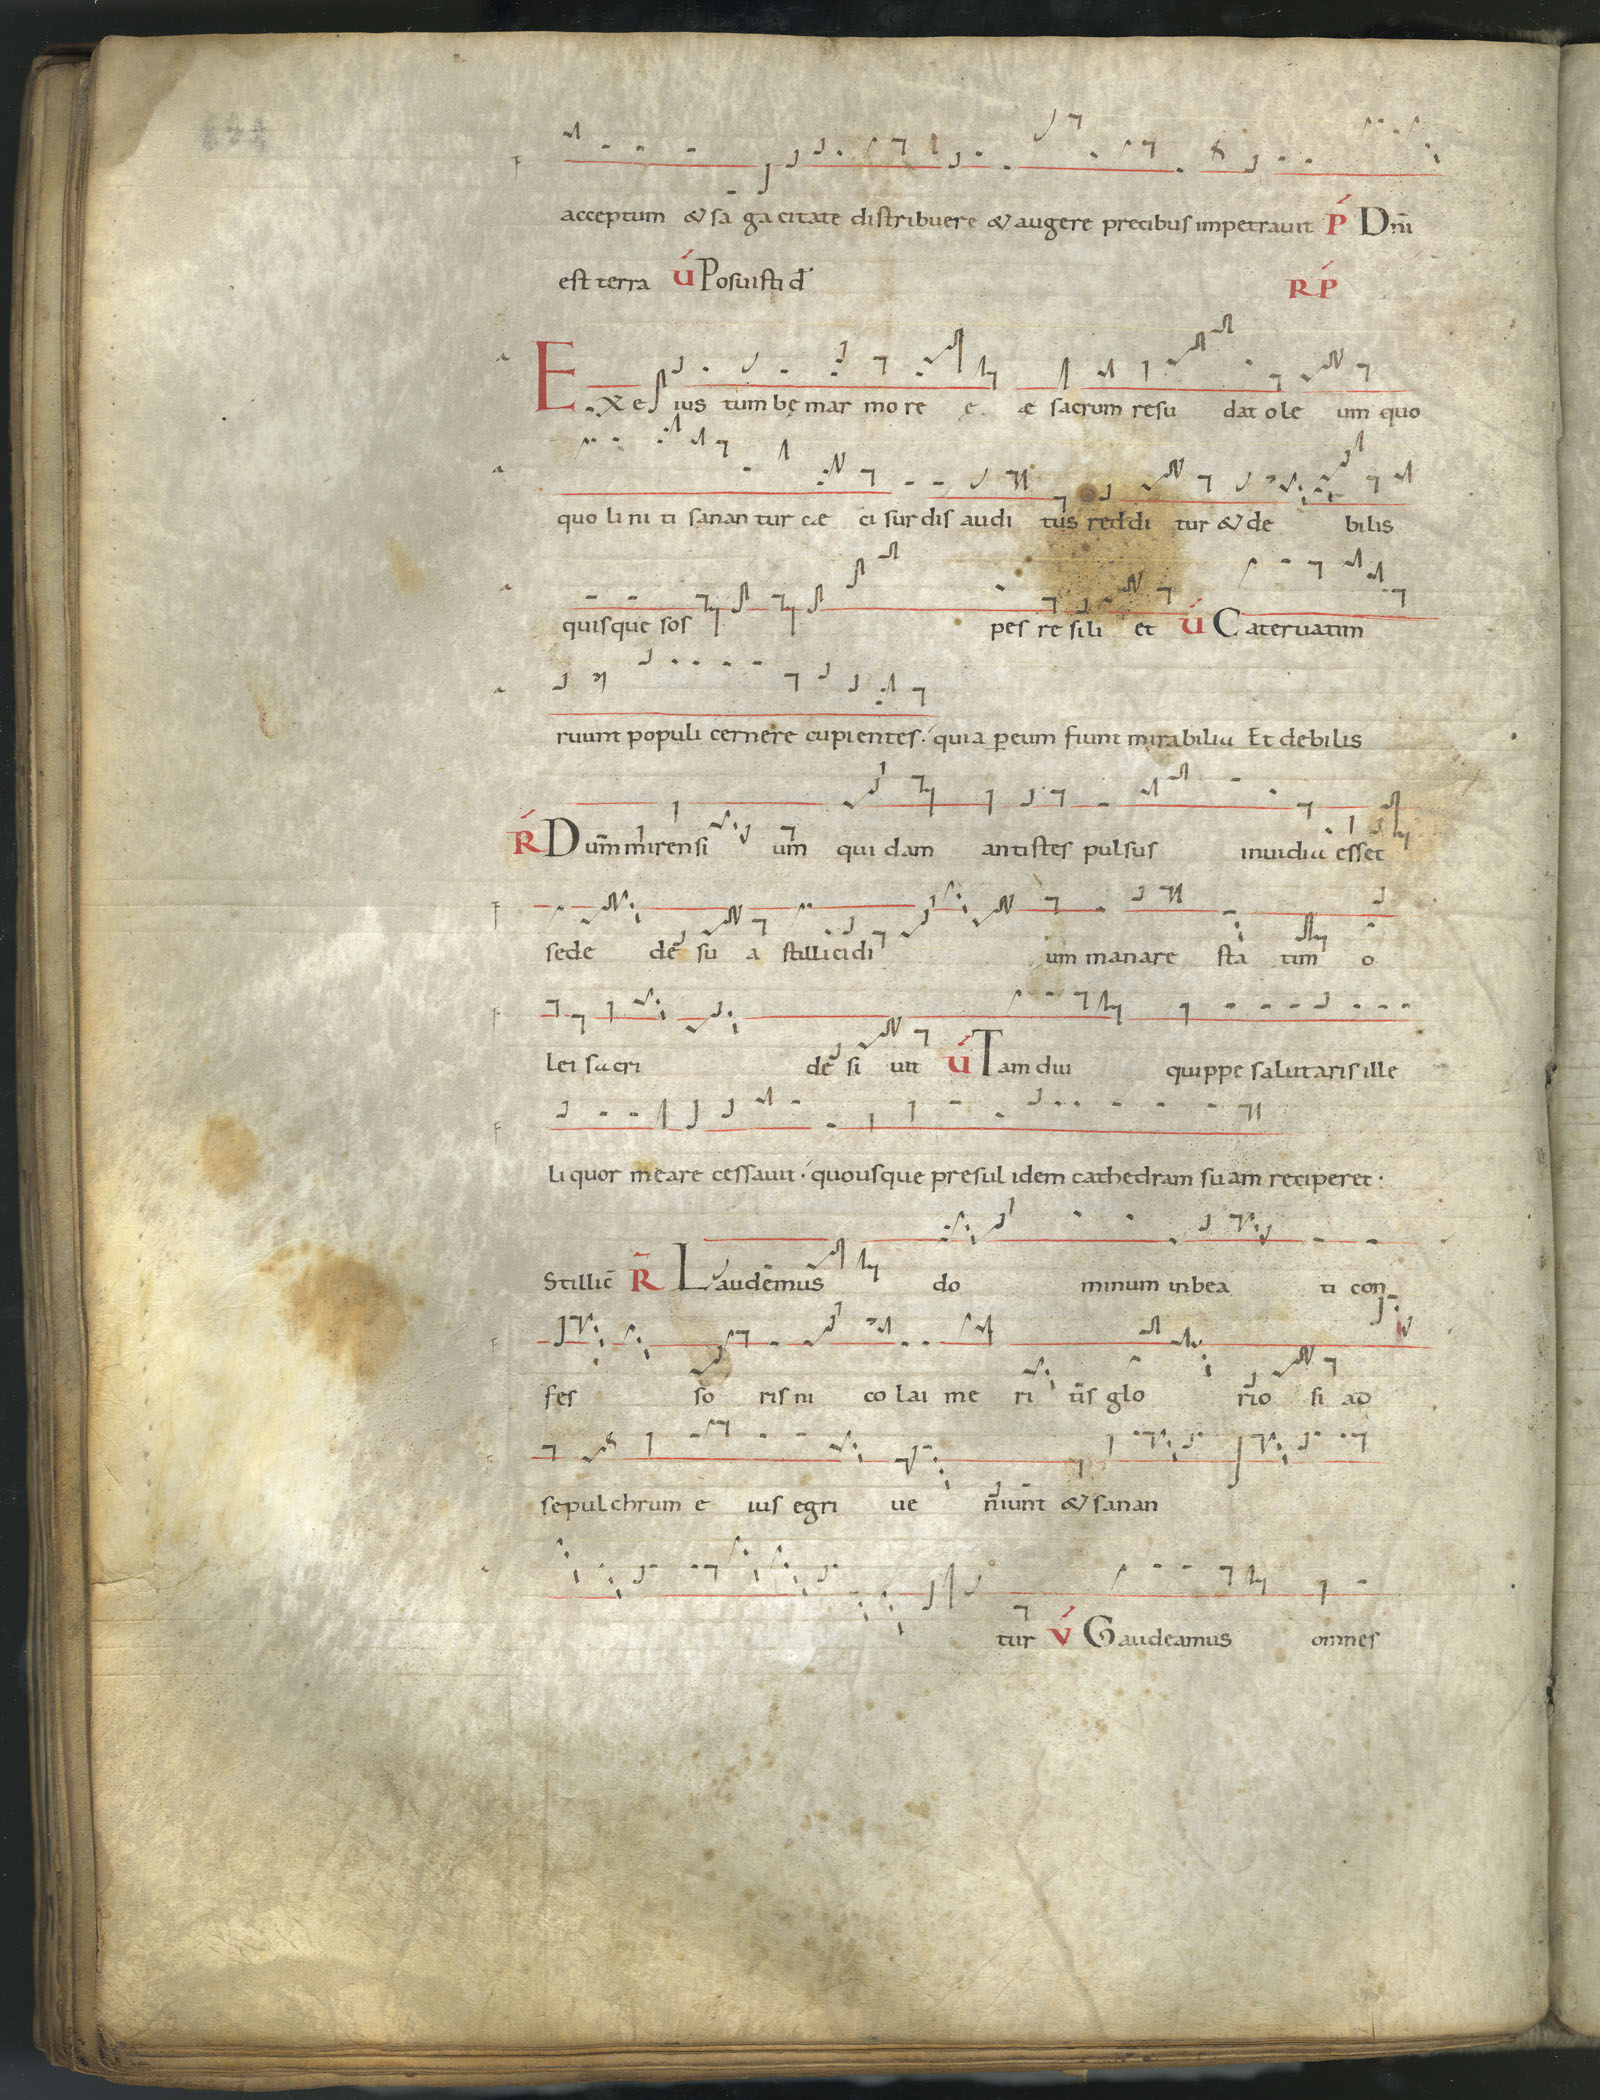 acceptum & sa ga citate distribuere & augere precibus impetrauit P Dñi
est terra V Posuisti d̄ RP
Ex e ius tum bę mar mo re ę æ sacrum resu dat ole um quo
quo li ni ti sanan tur cæ ci surdis audi tus reddi tur & de bilis
quisque sos pes re sili et V Cateruatim
ruunt populi cernere cupientes. quia per eum fiunt mirabilia Et debilis
R Dum mirensi um qui dam antistes pulsus inuidia esset
sede de su a stillicidi um manare sta tim o
lei sacri de si uit V Tam diu quippe salutaris ille
li quor meare cessauit. quousque presul idem cathedram suam reciperet.
Stillic̄ R Laudemus do minum in bea ti con
fes so ris ni co lai me ri tis glo rio si ad
sepulchrum e ius egri ue niunt & sanan
tur V Gaudeamus omnes